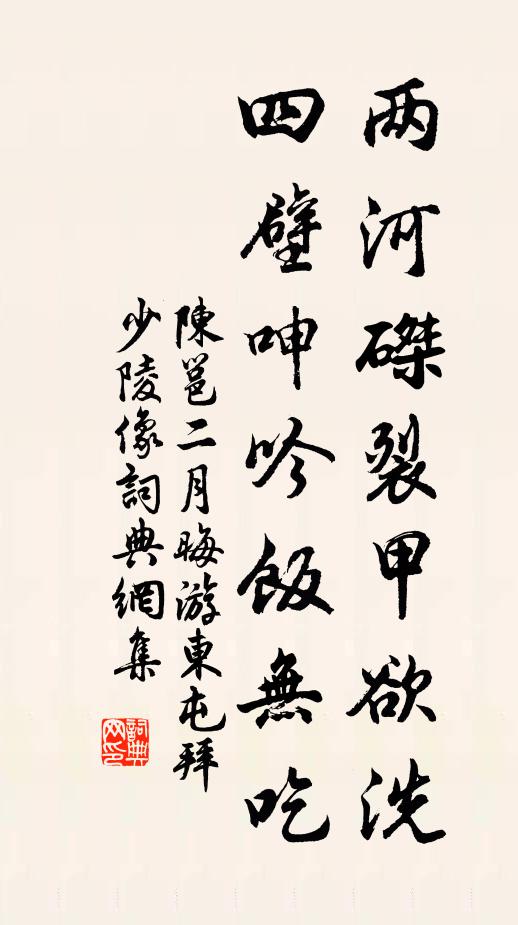 两河磔裂甲欲洗
四壁呻吟飯無吃
陳邕二月晦游東屯拜
少陵像詞典網集
詞典
网印